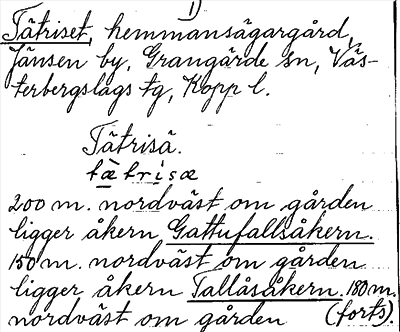 1)
Tätriset, hemmansägargård,
Jänsen by, Grangärde sn, Väs-
terbergslags tg, Kopp l.
Tätrisä.
tὲtrisæ
200 m. nordväst om gården
ligger åkern Gattufallsåkern.
150 m. nordväst om gården
ligger åkern Tallåsåkern. 180 m.
nordväst om gården (forts)